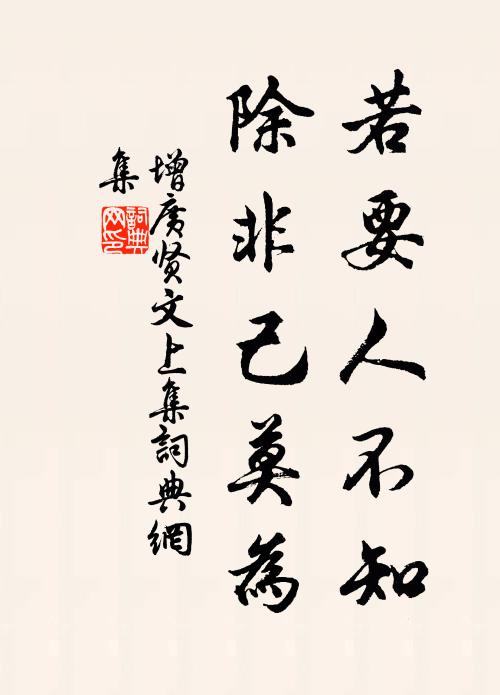 若要人不知
除非己莫為
增广贤文上集詞典網
集
詞典
网印